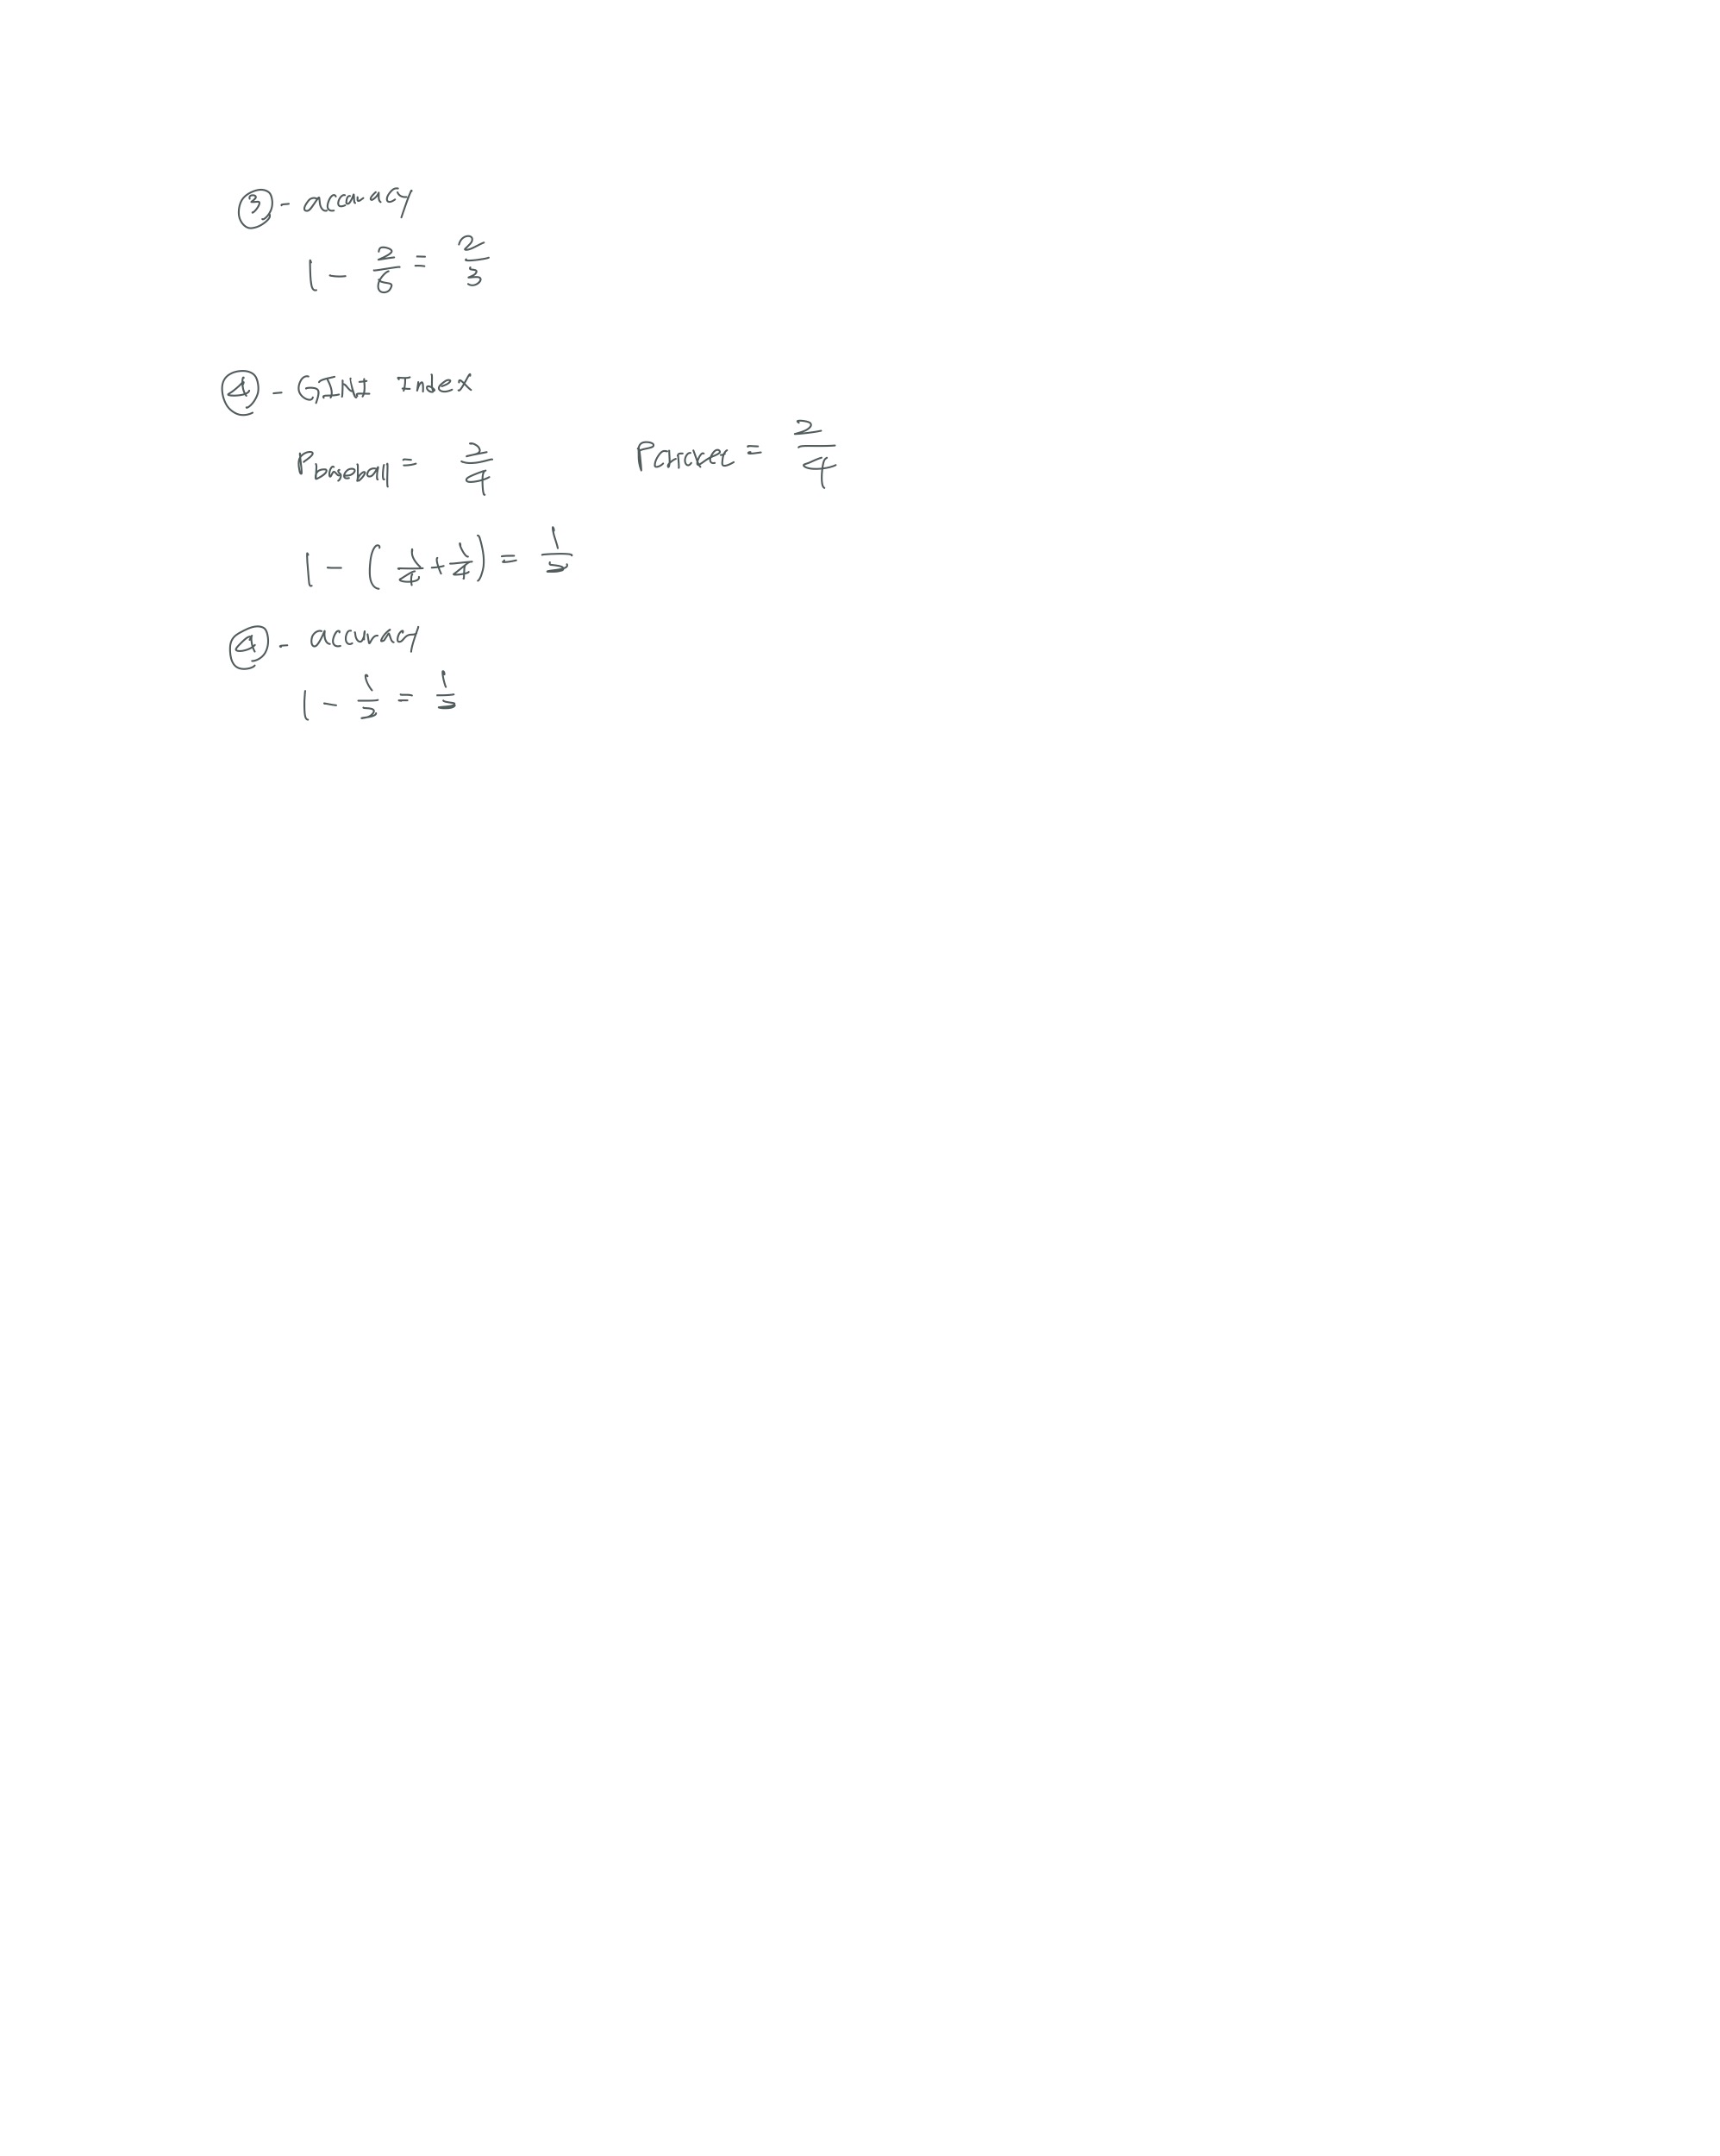 ③ - accuracy
1 - 2/6 = 2/3
④ - GINI Index
P baseball = 2/4
1 - ( 1/4 + 1/4 ) = 1/2
④ - accuracy
1 - 1/2 = 1/2